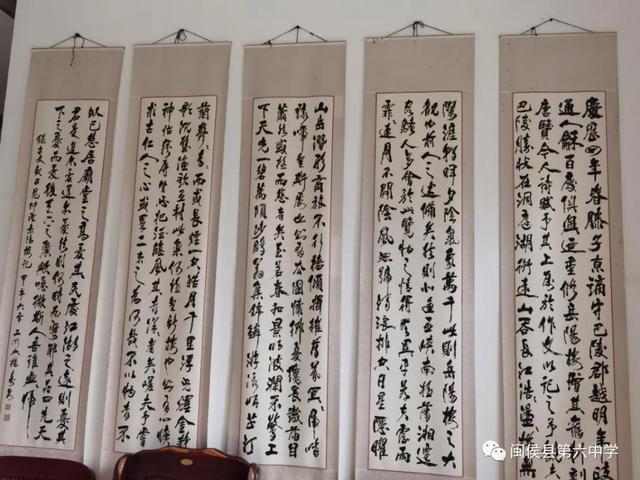 慶曆四年春滕子京謫守巴陵郡越明年政
通人和百廢俱興迺重修岳陽樓增其舊制刻
唐賢今人詩賦于其上屬予作文以記之予觀夫
巴陵勝狀在洞庭湖銜遠山吞長江浩浩湯湯橫無
際涯朝暉夕陰氣象萬千此則岳陽樓之大
觀也前人之述備矣然則北通巫峽南極瀟湘遷
客騷人多會於此覽物之情得無異乎若夫霪雨
霏霏連月不開陰風怒號濁浪排空日星隱曜
山岳潛形商旅不行檣傾楫摧薄暮冥冥虎嘯
猿啼登斯樓也則有去國懷鄉憂讒畏譏滿目
蕭然感極而悲者矣至若春和景明波瀾不驚上
下天光一碧萬頃沙鷗翔集錦鱗游泳岸芷汀
蘭郁郁青青而或長煙一空皓月千里浮光躍金靜
影沉璧漁歌互答此樂何極登斯樓也則有心曠
神怡寵辱皆忘把酒臨風其喜洋洋者矣嗟夫予嘗
求古仁人之心或異二者之為何哉不以物喜不
以己悲居廟堂之高則憂其民處江湖之遠則憂其
君是進亦憂退亦憂然則何時而樂耶其必曰先天
下之憂而憂後天下之樂而樂歟噫微斯人吾誰與歸
范仲淹岳陽樓記 甲午
闽侯县第六中学